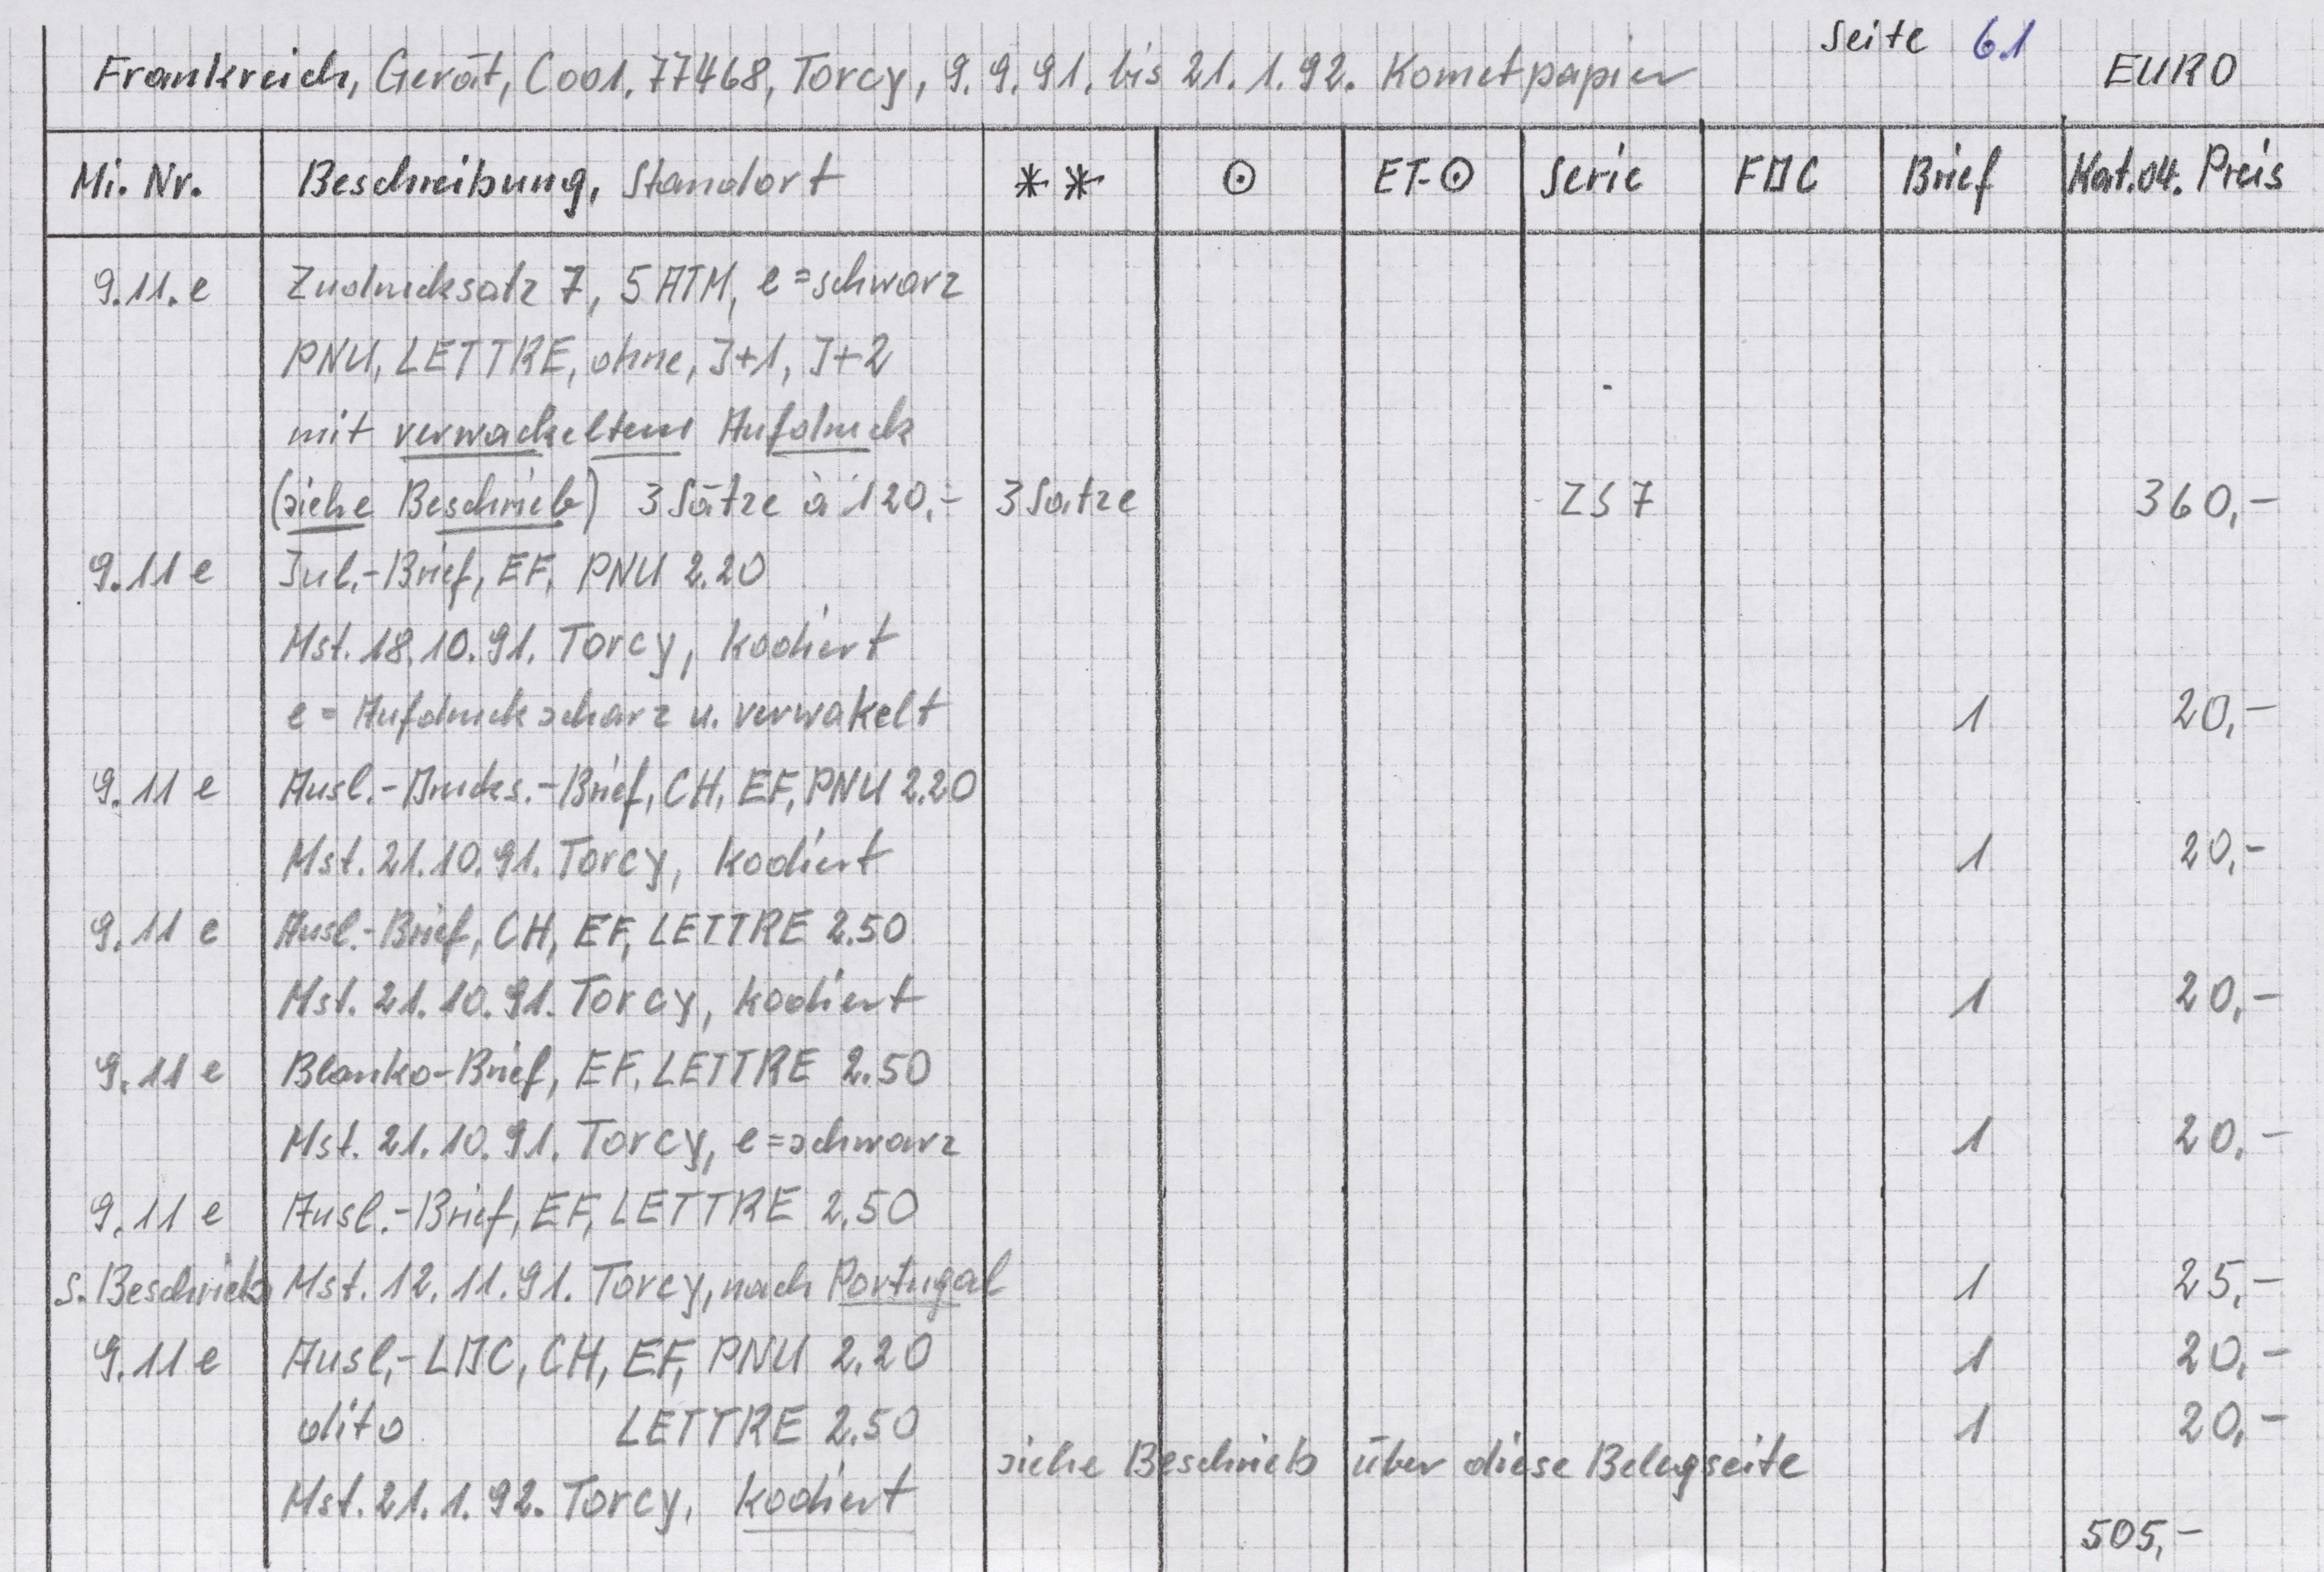 Seite 61
Frankreich, Gerät, C001, 77468, Torcy, 9.9.91. bis 21.1.92. Kometpapier EURO
Mi. Nr. Beschreibung, Standort ** ⊙ ET-⊙ Serie FDC Brief Kat.04. Preis
9.11.e Zudrucksatz 7, 5 ATM, e=schwarz
PNU, LETTRE, ohne, J+1, J+2
mit verwackeltem Aufdruck
(siehe Beschrieb) 3 Sätze à 120,- 3 Sätze ZS 7 360,-
9.11 e Inl.-Brief, EF, PNU 2.20
Mst. 18.10.91. Torcy, kodiert
e = Aufdruck scharz u. verwakelt 1 20,-
9.11 e Ausl.-Drucks.-Brief, CH, EF, PNU 2.20
Mst. 21.10.91. Torcy, kodiert 1 20,-
9.11 e Ausl.-Brief, CH, EF, LETTRE 2.50
Mst. 21.10.91. Torcy, kodiert 1 20,-
9.11 e Blanko-Brief, EF, LETTRE 2.50
Mst. 21.10.91. Torcy, e=schwarz 1 20,-
9.11 e Ausl.-Brief, EF, LETTRE 2.50
s. Beschrieb Mst. 12.11.91. Torcy, nach Portugal 1 25,-
9.11 e Ausl,-LDC, CH, EF, PNU 2.20 1 20,-
dito LETTRE 2.50 1 20,-
siehe Beschrieb über diese Belegseite
Mst. 21.1.92. Torcy, kodiert
505,-